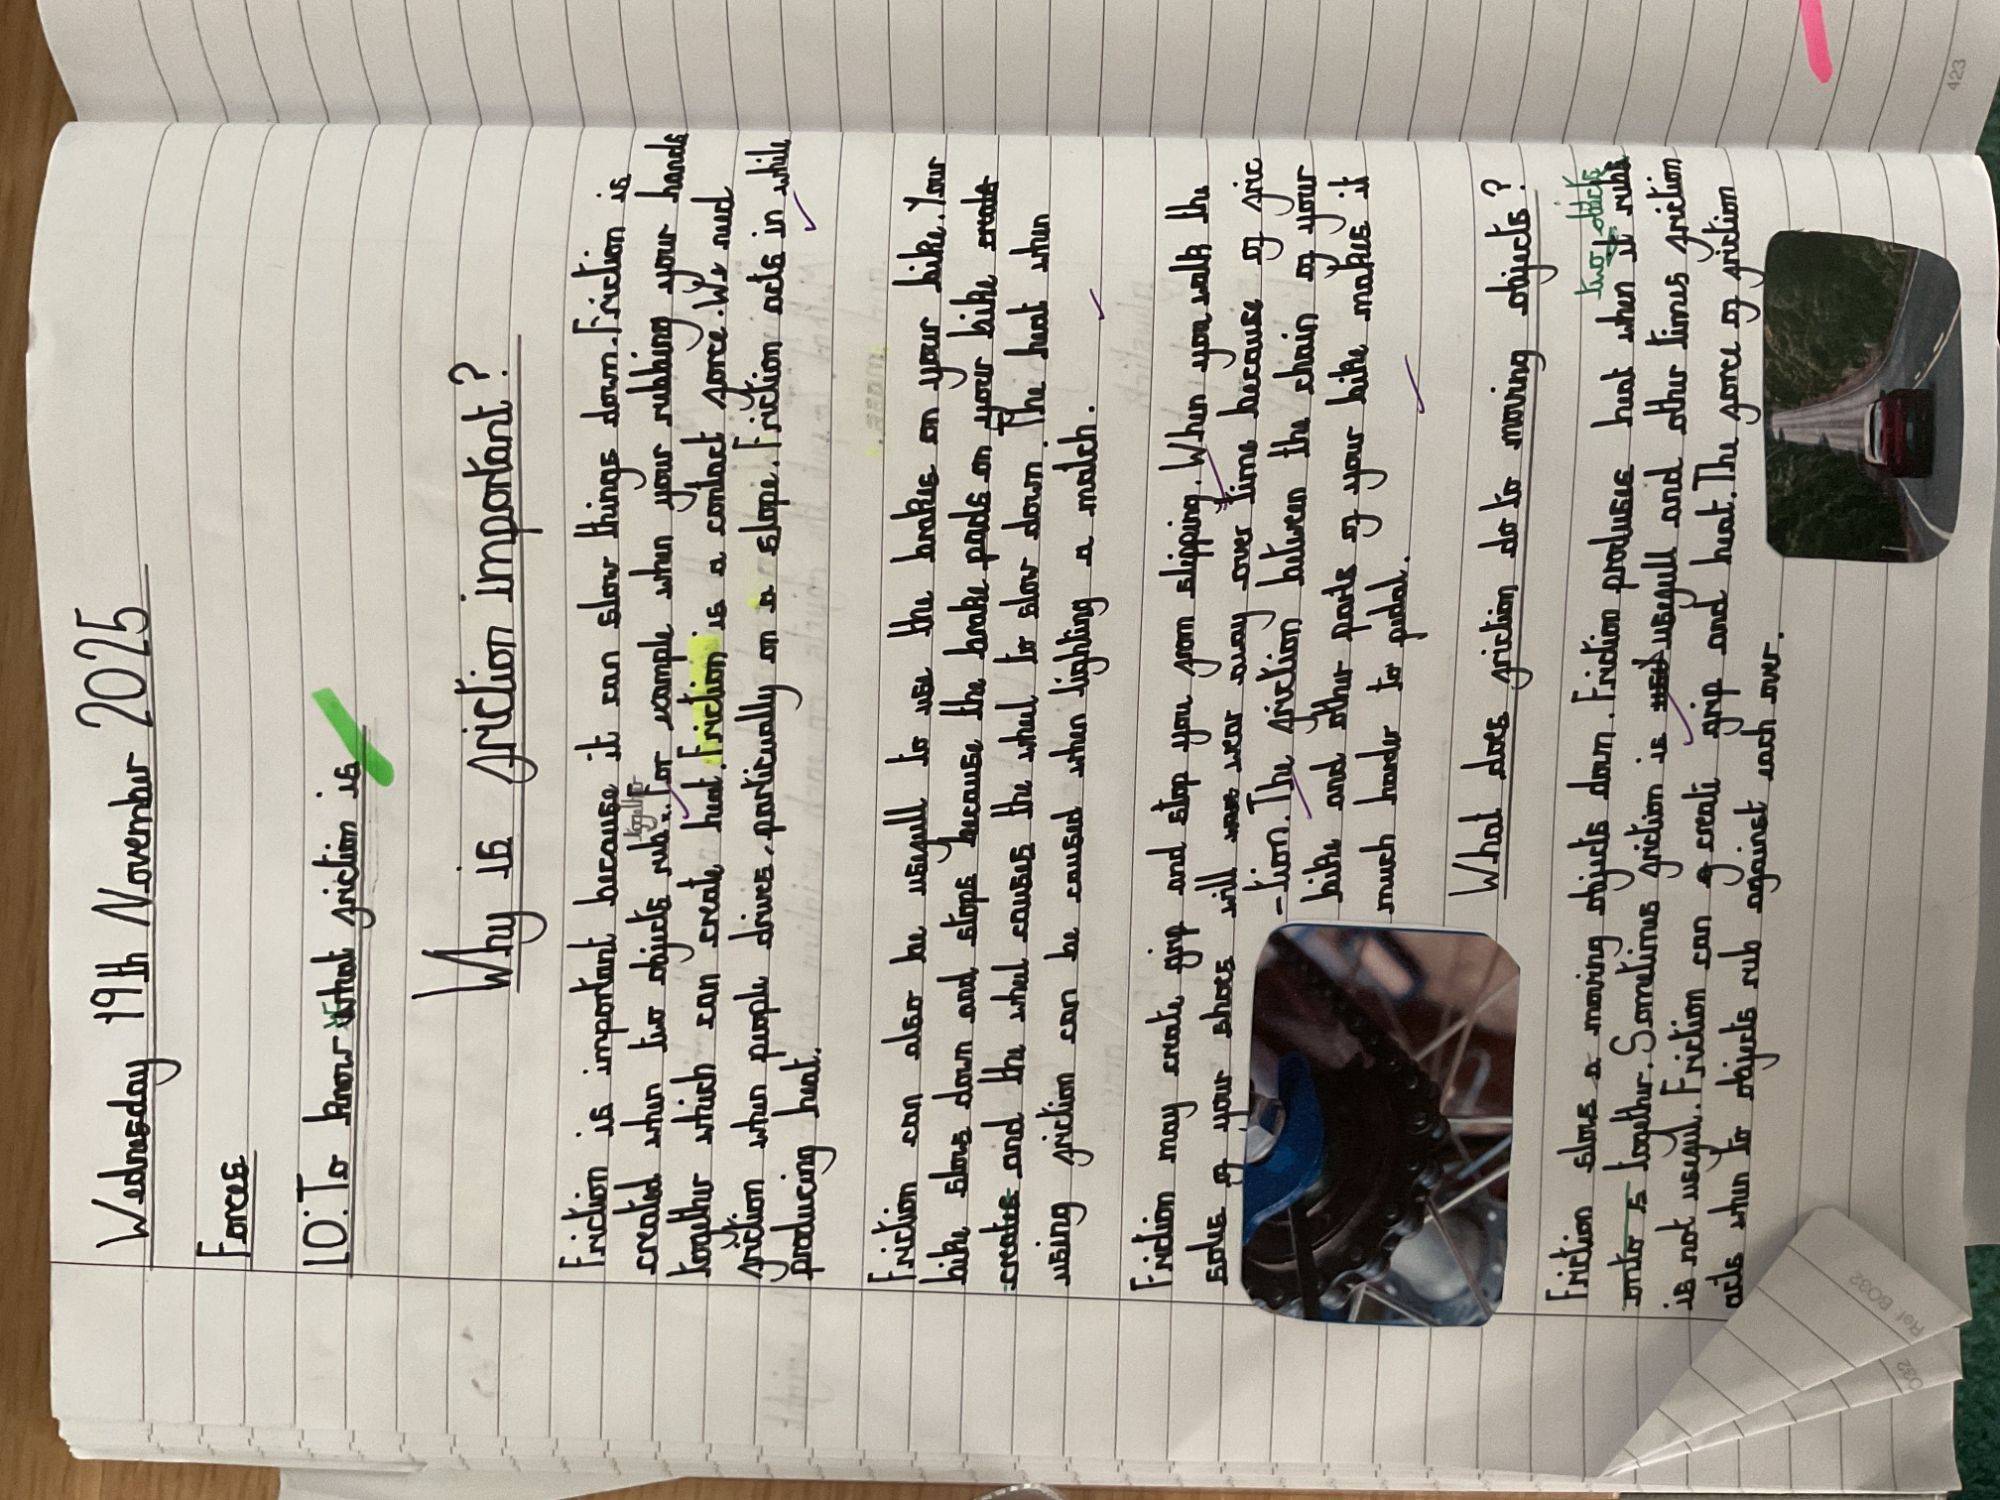 Wednesday 19th November 2025
Forces
LO: To know what friction is
Why is friction important?
Friction is important because it can slow things down. Friction is
created when two objects rub together. For example when your rubbing your hands
together which can create heat. Friction is a contact force. We need
friction when people drives, particually on a slope. Friction acts in while
producing heat.
Friction can also be usefull to use the brakes on your bike. Your
bike slows down and stops because the brake pads on your bike create
creates and the wheel causes the wheel to slow down. The heat when
using friction can be caused when lighting a match.
Friction may create grip and stop you from slipping. When you walk the
soles of your shoes will wear away over time because of fric
-tion. The friction between the chain of your
bike and other parts of your bike makes it
much harder to pedal.
What does friction do to moving objects?
two objects
Friction slows a moving objects down. Friction produses heat when it rubs
onto s together. Sometimes friction is usefull and other times friction
is not useful. Friction can create grip and heat. The force of friction
acts when to objects rub against each over.
423
Ref: BO32